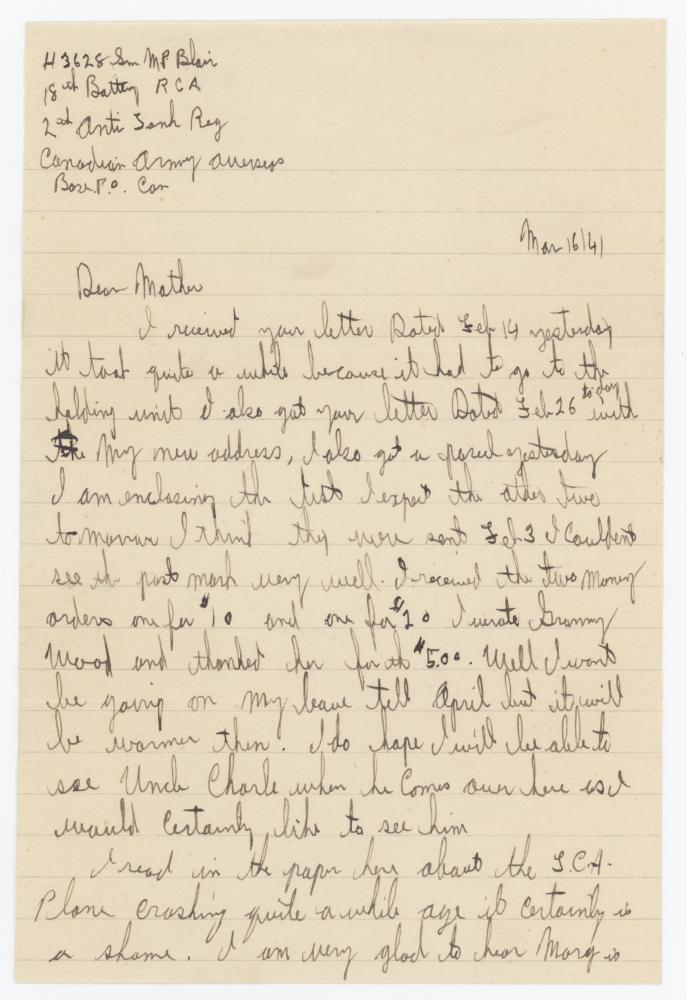 H3628 Gnr MP Blair
18th Battery RCA
2nd Anti Tank Reg
Canadian Army Overseas
Base P.O. Can
Mar 16/41
Dear Mother
I received your letter Dated Feb 14 yesterday
it toat quite a while because it had to go to the
holding unit I also got your letter Dated Feb 26 to day with
the My new address, I also got a parcel yesterday
I am enclosing the list I expect the other two
tomorrow I think they were sent Feb 3 I Couldent
see the post mark very well. I received the two Money
orders one for $10 and one for $20 I wrote Granny
Wood and thanked her for the $5.00. Well I wont
be going on My leave tell April but it will
be warmer then. I do hope I will be able to
see Uncle Charle when he Comes over here as I
would Certainly like to see him
I read in the paper here about the T.C.A.
Plane crashing quite a while age it Certainly is
a shame. I am very glad to hear Marg is